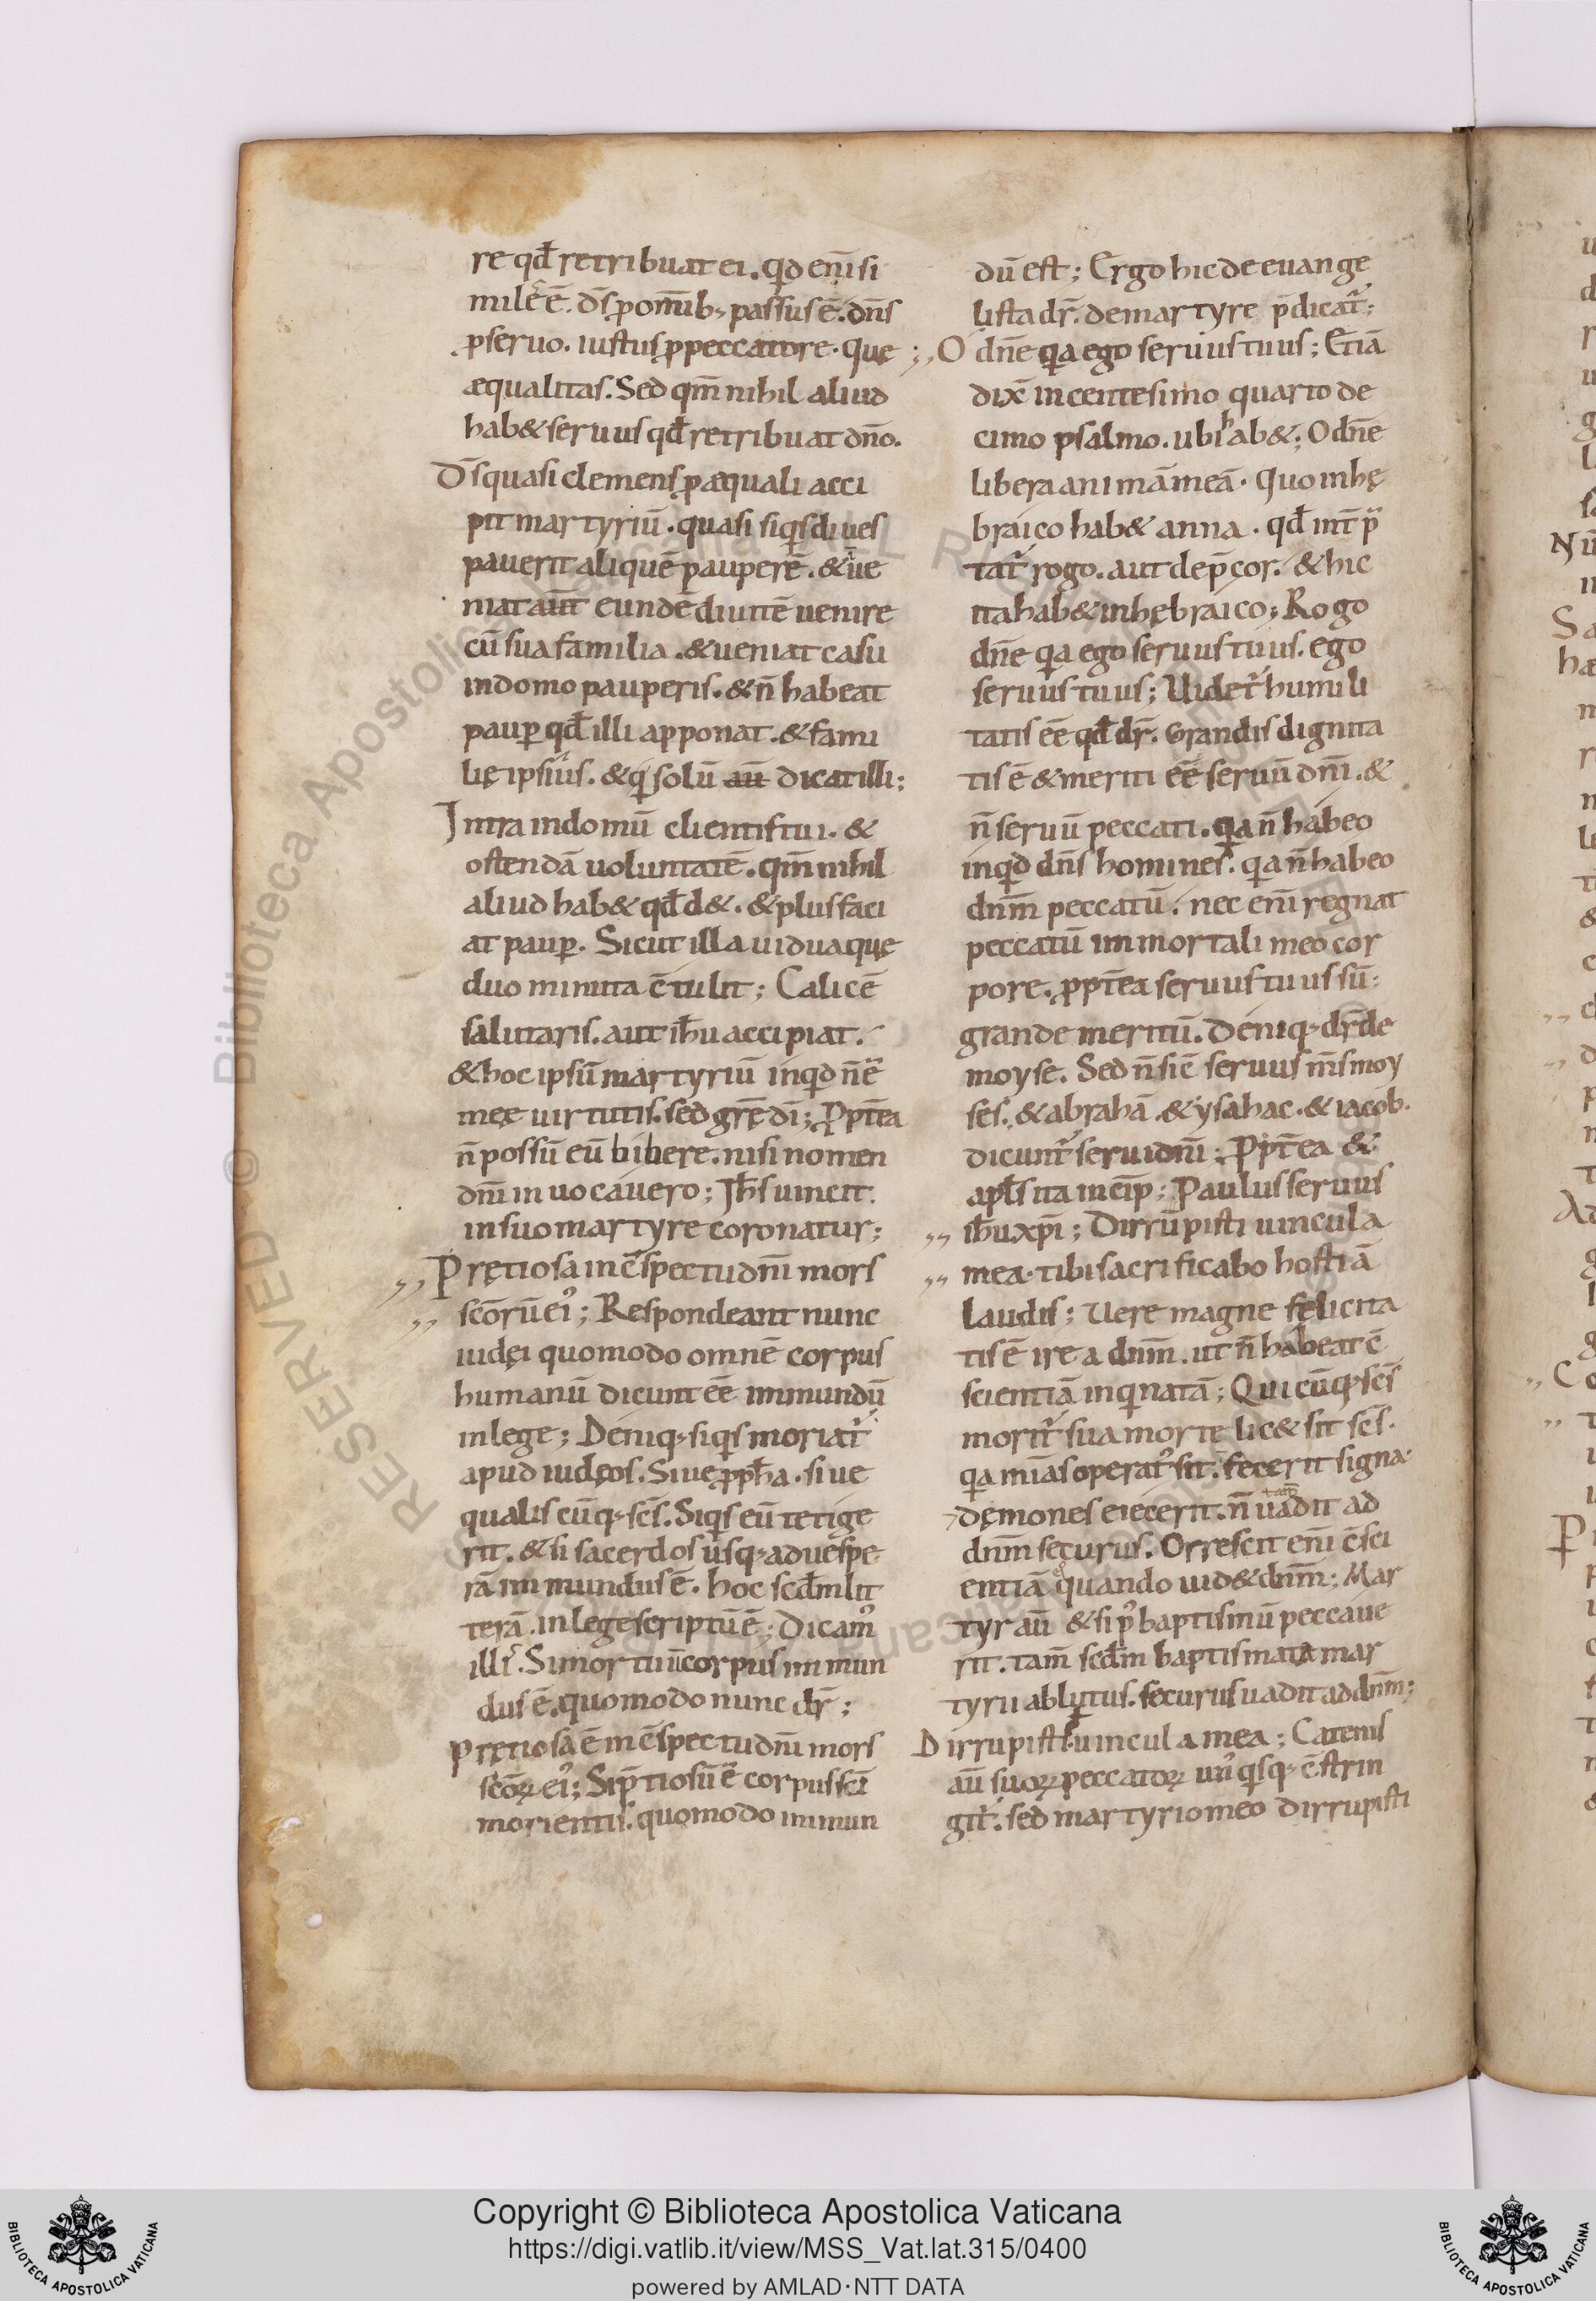 re qđ retribuat ei. qđ enī si
milē ē. d̄s ꝓ om̄ib; passus ē. dn̄s
ꝑ seruo. iustus ꝓ peccatore. Quę
æqualitas. Sed qm̄ nihil aliud
hab& seruus qđ retribuat dn̄o.
D̄s quasi clemens ꝓ æquali acci
pit martyriū. quasi siqͥs diues
pauerit aliquē pauperē. & īue
niat aūt eundē diuitē uenire
cū sua familia. & ueniat casu
in domo pauperis. & n̄ habeat
pauꝑ qđ illi apponat. & fami
lię ipsius. & qͥ solū au̅ dicat illi;
Intra in domū clientis tui. &
ostendā uoluntatē. qm̄ nihil
aliud hab& qđ d&. & plus faci
at pauꝑ. Sicut illa uidua quę
duo minuta c̄tulit; Calicē
salutaris. aut ih̄u accipiat.
& hoc ipsū martyriū inqͥd n̄ ē
męę uirtutis. sed gr̄ę dī; Ꝓpt̄ea
n̄ possū eū bibere. nisi nomen
dn̄i inuocauero; Ih̄s uincit
in suo martyre coronatur;
,, Prętiosa in c̄spectu dn̄i mors
,, sc̄orū ei᾽; Respondeant nunc
iudęi quomodo omnē corpus
humanū dicunt eē immundū
in lege; Deniq; siqͥs moriat᷑
apud iudęos. Siue ꝓph̄a. siue
qualis cūq; sc̄s. Siqͥs eū tetige
rit. & si sacerdos usq; ad uespe
rā immundus ē. hoc scđm lit
terā. in lege scriptū ē; Dicam᾽
illi. Si mortuū corpus immun
dus ē. quomodo nunc dr̄;
Prętiosa ē in c̄spectu dn̄i mors
sc̄oꝝ ei᾽; Si p̄tiosū ē corpus sc̄i
morientis. quomodo immun
dū est; Ergo hic de euange
lista dr̄. de martyre p̄dicat᷑;
,, O dn̄e qͥa ego seruus tuus; Etiā
dix̄ in centesimo quarto de
cimo psalmo. ubi hab&; O dn̄e
libera animā meā. Quo in hę
braico hab& anna. qđ int̄p̄
tat᷑ rogo. aut dep̄cor. & hic
ita hab& in hębraico; Rogo
dn̄e qͥa ego seruus tuus. ego
seruus tuus; Uidet᷑ humili
tatis eē qđ dr̄. Grandis dignita
tis ē & meriti eē seruū dn̄i. &
n̄ seruū peccati. qͥa n̄ habeo
inqͥd dn̄s homines. qͥa n̄ habeo
dn̄m peccatū. nec enī regnat
peccatū in mortali meo cor
pore. ꝓpt̄ea seruus tuus sū;
grande meritū. Deniq; dr̄ de
moyse. Sed n̄ sic̄ seruus m̄s moy
ses. & abrahā. & ysahac. & iacob.
dicunt᷑ serui dn̄i; Ꝓpt̄ea &
apl̄s ita incīp; Paulus seruus
,, ih̄u xp̄i; Dirrūpisti uincula
,, mea. tibi sacrificabo hostiā
laudis; Uere magne felicita
tis ē ire a dn̄m. ut n̄ habeat c̄
scientiā inqͥnatā; Quicūq; sc̄s
morit᷑ sua morte lic& sit sc̄s.
qͥa m̄ias operat᾽ sit. fecerit signa.
dęmones eiecerit. n̄ uadit ad
dn̄m securus. Orrescit enī c̄sci
entiā quando uid& dn̄m; Mar
tyr au̅ & si p᾽ baptismū peccaue
rit. tam̄ scđm baptismata mar
tyrii ablutus. securus uadit ad dn̄m;
Dirrupisti uincula mea; Catenis
au̅ suoꝝ peccatoꝝ un᾽ qͥsq; c̄strin
git᷑. sed martyrio meo dirrupisti
Copyright © Biblioteca Apostolica Vaticana
https://digi.vatlib.it/view/MSS_Vat.lat.315/0400
powered by AMLAD·NTT DATA